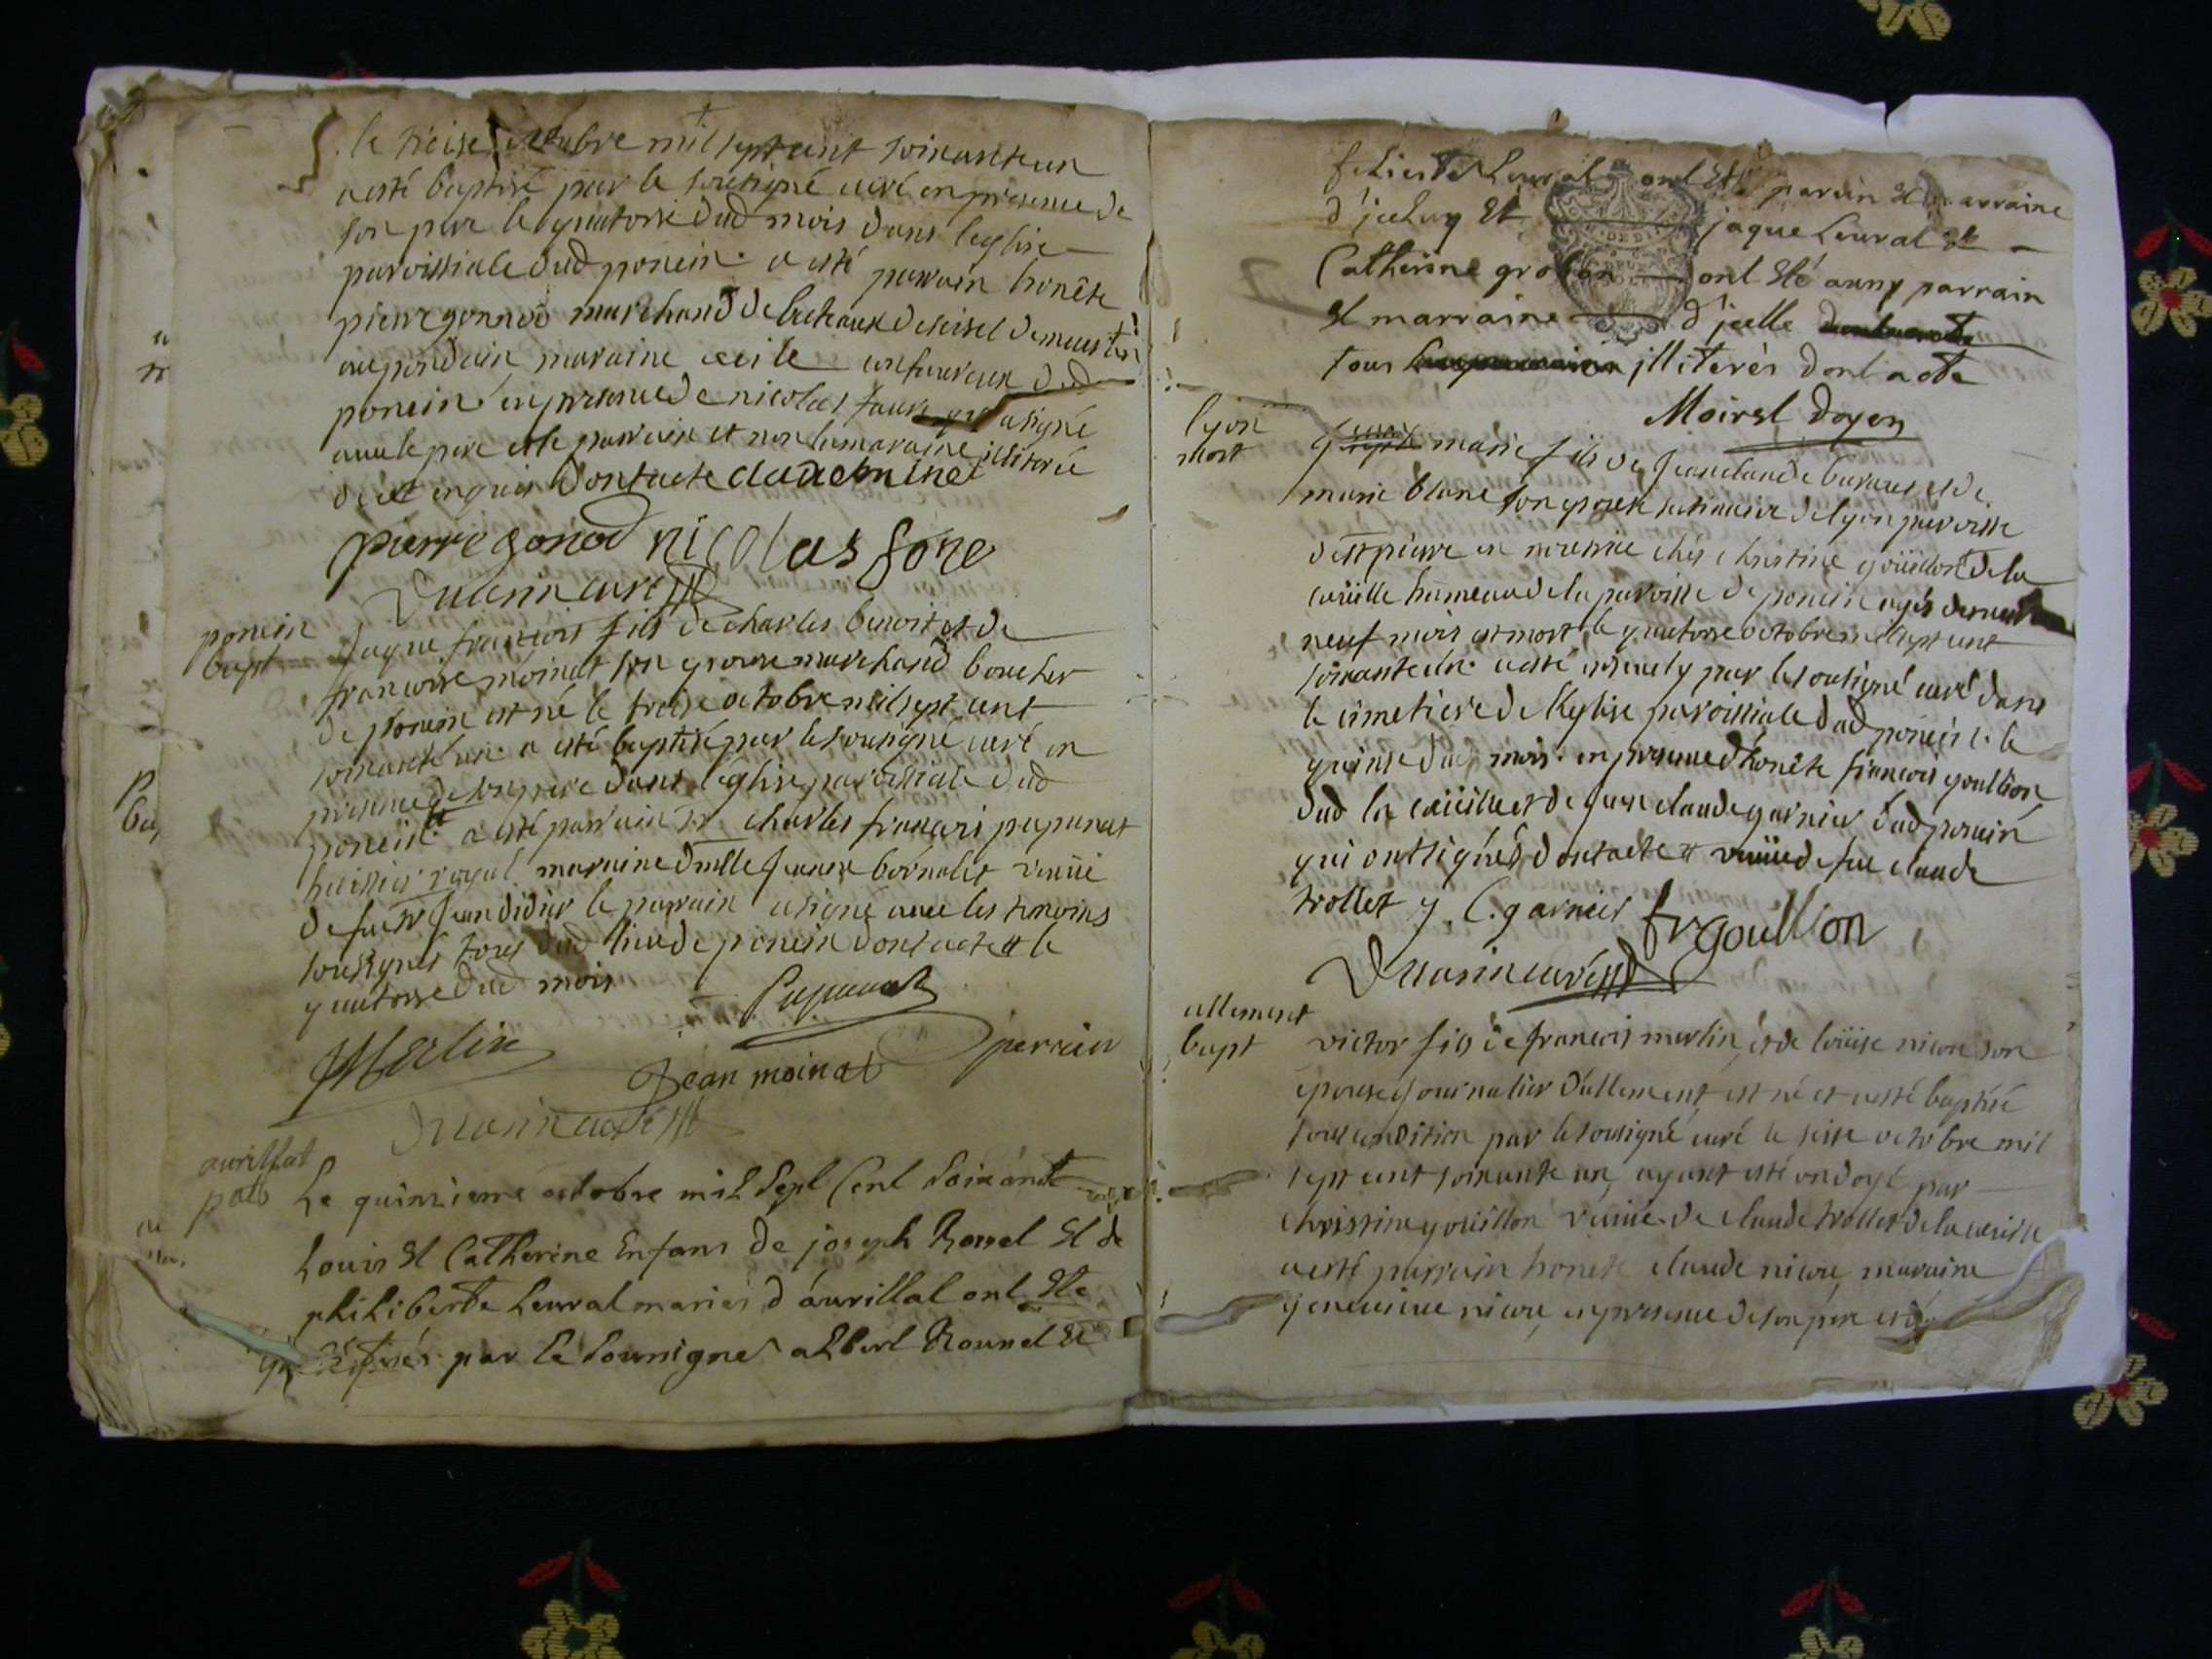 le treise octobre mil sept cent soixante un
a esté baptisé par le soussigné curé en presence de
son pere le quatorse dud mois dans leglise
paroissiale dud poncin. a esté parrain honête
pierre gonnod marchand de bateaux de
maraine cecile dud
poncin en presence de nicolas faure a signé
avec le pere et le parrain et non la maraine illiterée
de ce enquis dont acte
pierre gonod nicolas fore
curé
poncin
bapt
Jaque francois fils de charles benoit et de
francoise moinat son epouse marchand boucher
de poncin est né le treise octobre mil sept cent
soixante un. a esté baptisé par le soussigné curé en
presence de son pere dans l'eglise paroissiale dud
poncin. a esté parrain sr charles francois papunat
huissier royal maraine dmlle Jeanne vëuve
de feu sr Jean didier le parrain a signé avec les temoins
soussignés tous dud lieu de poncin dont acte et le
quatorse dud mois
Papunat
JMerlin
Jean moinat perrier
curé
aurillat
bats
Le quinzieme octobre mil Sept Cent Soixante
Louis Et Catherine Enfans de joseph Rossel Et de
philiberte Leural mariés d'aurillat ont Eté
par le soussigné albert Roussel Et
Leural ont Eté parain Et marraine
d'jceluy Et jaque Leural Et
Catherine grobon ont Eté aussy parrain
Et marraine d'jcelle
tous jlliterés dont acte
Moiret doyen
lyon
mort
marie fils de Jean claude et de
marie blanc son epouse de lyon paroisse
de st pierre en nourrice chés christine goüillon de la
cuëille hameau de la paroisse de poncin agés de
neuf mois est mort le quatorse octobre mil sept cent
soixante un. a esté enseuely par le soussigné curé dans
le cimetiere de l'eglise paroissiale dud poncin le
quinse dud mois. en presence d'honête francois goullion
dud la cuëille et de Jean claude garnier dud poncin
qui ont signés dont acte et vëuve de feu claude
trollet J. C. garnier fr goullion
curé
allement
bapt
victor fils de francois merlin et de loüise nicou son
epouse journalier d'allement est né et a esté baptisé
sous condition par le soussigné curé le seise octobre mil
sept cent soixante un, ayant esté ondoyé par
christine goüillon vëuve de claude trollet de la cuëille
a esté parrain honête claude nicou, maraine
genevieve nicou, en presence de son pere